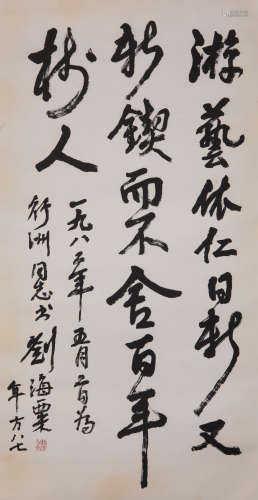 游藝依仁日新又
新鍥而不舍百年
树人
一九八二年五月日為
洲同志书劉海粟
年方八七